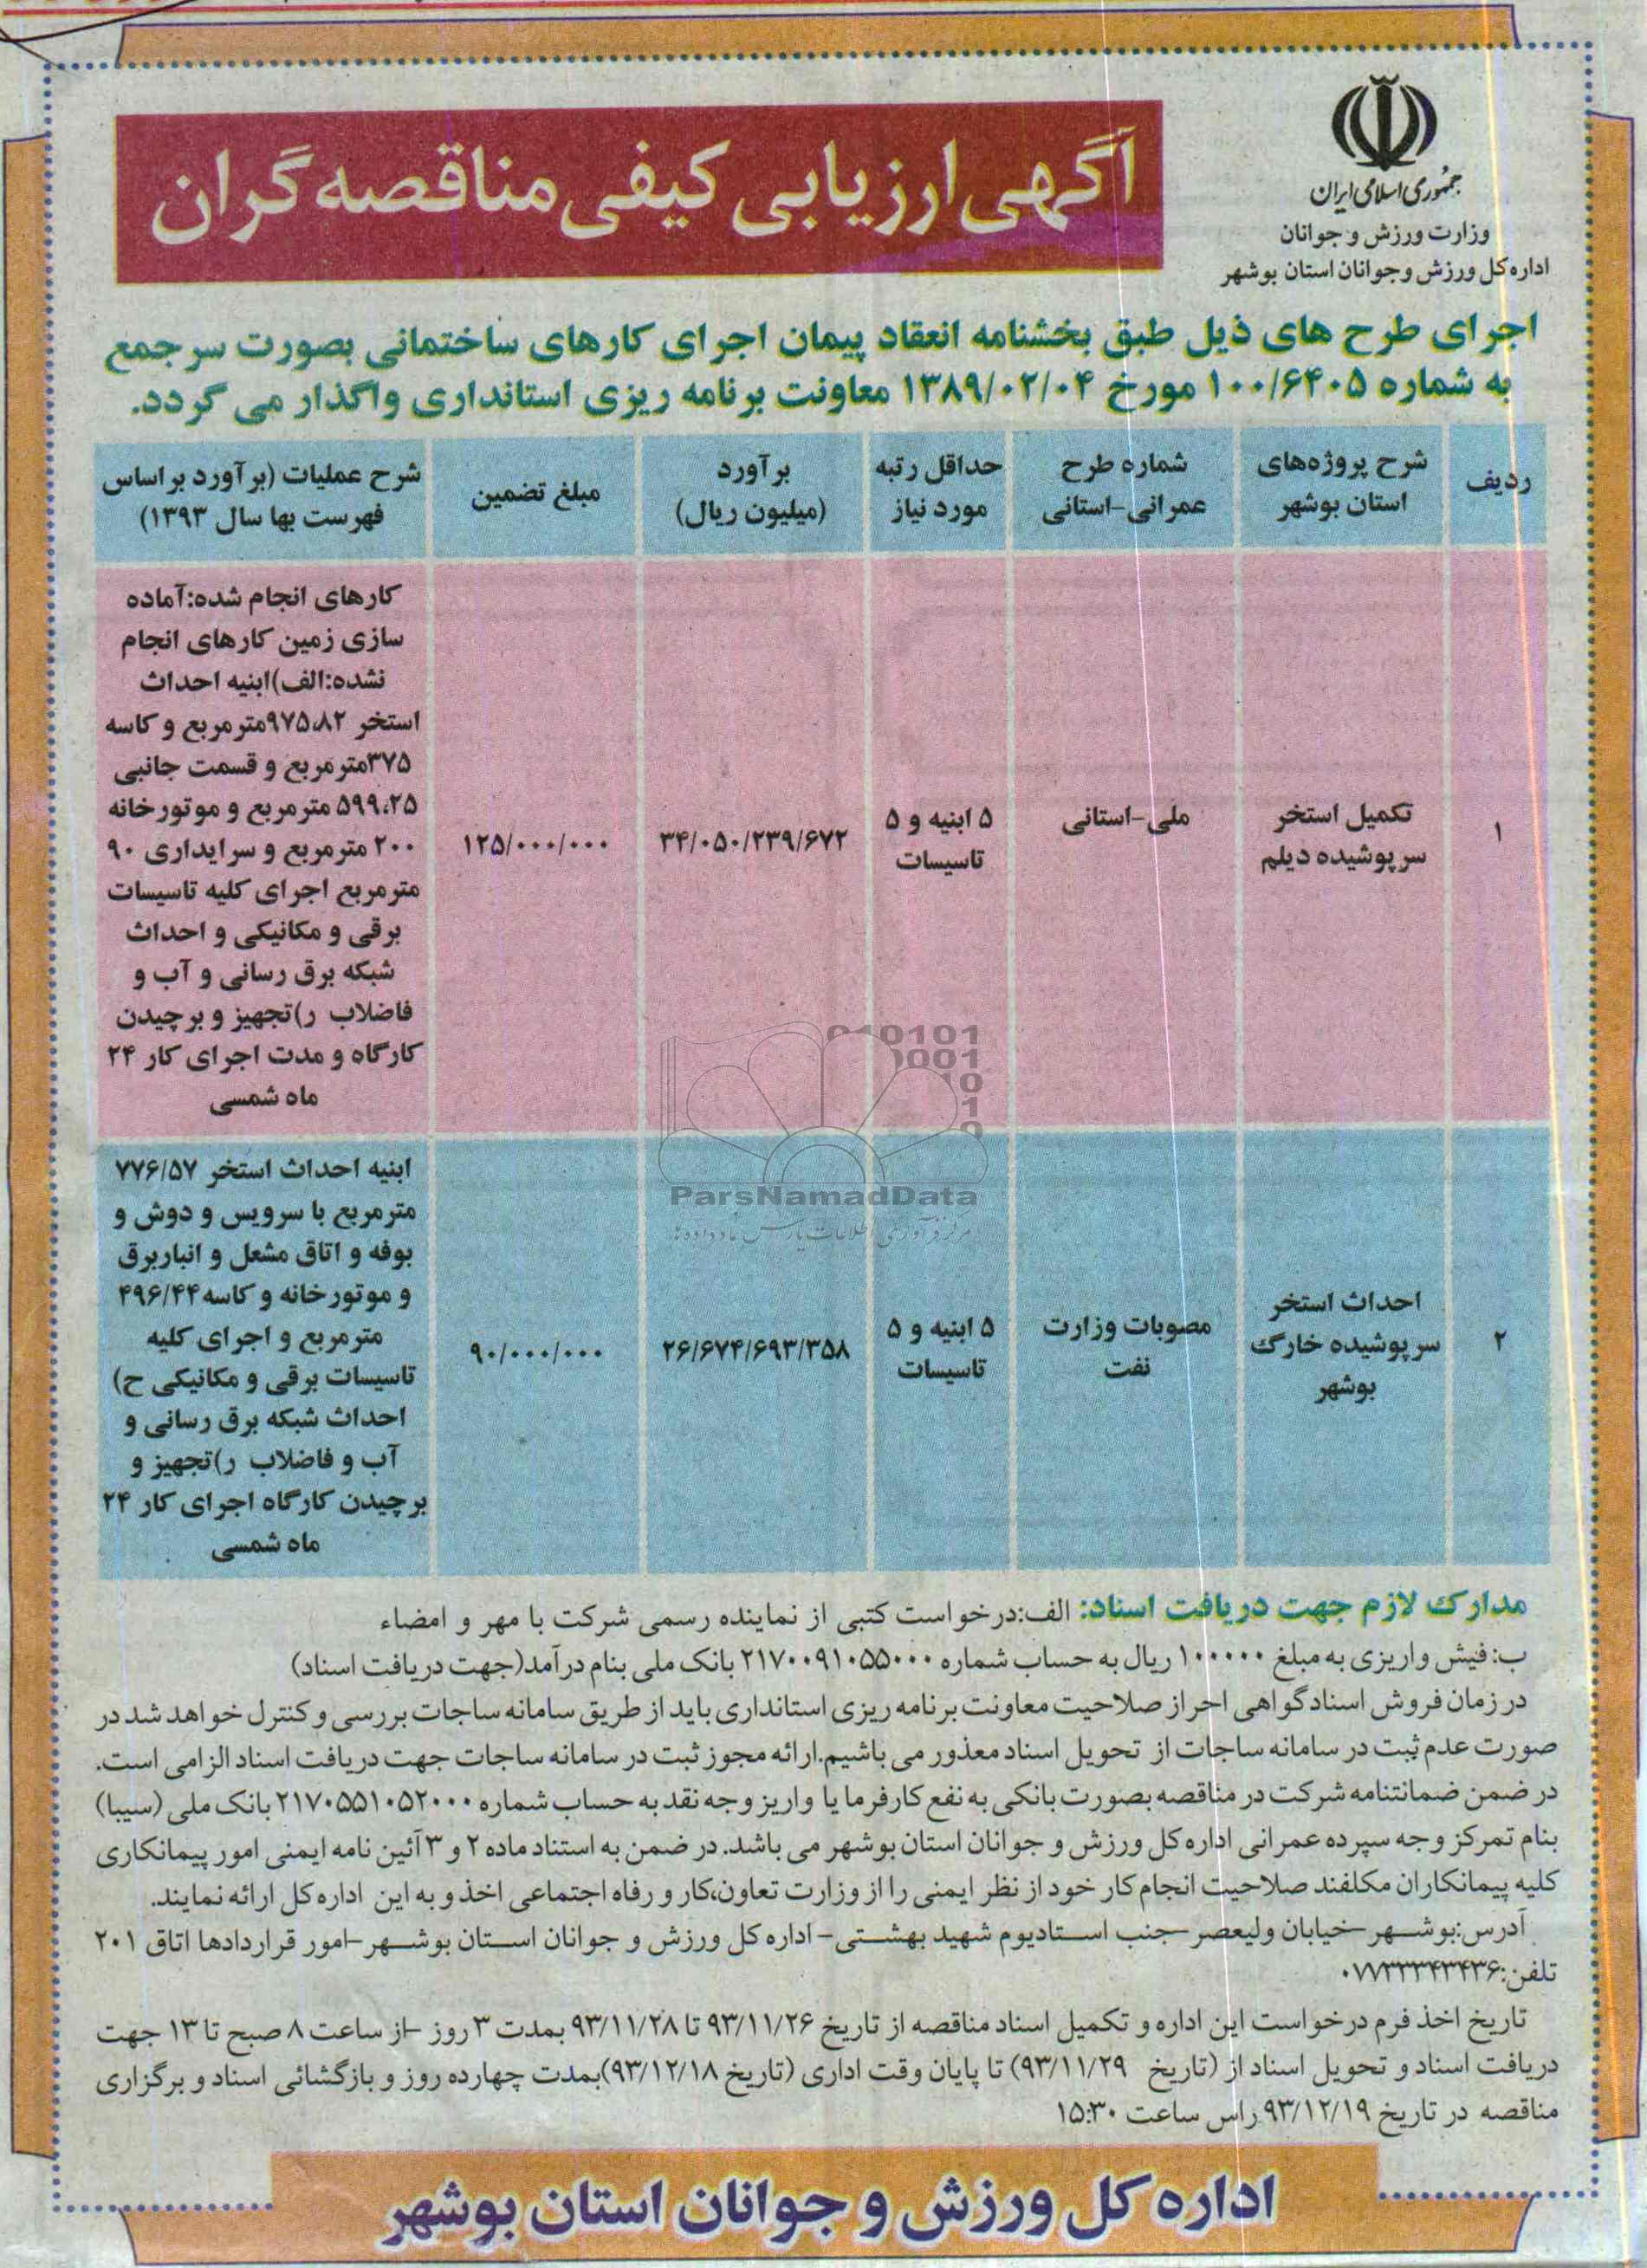 جمهوری اسلامی ایران
وزارت ورزش و جوانان
اداره کل ورزش و جوانان استان بوشهر
آگهی ارزیابی کیفی مناقصه گران
اجرای طرح های ذیل طبق بخشنامه انعقاد پیمان اجرای کارهای ساختمانی بصورت سرجمع
به شماره ۱۰۰/۶۴۰۵ مورخ ۱۳۸۹/۰۲/۰۴ معاونت برنامه ریزی استانداری واگذار می گردد.
ردیف
شرح پروژه‌های
استان بوشهر
شماره طرح
عمرانی-استانی
حداقل رتبه
مورد نیاز
برآورد
(میلیون ریال)
مبلغ تضمین
شرح عملیات (برآورد براساس
فهرست بها سال ۱۳۹۳)
۱
تکمیل استخر
سرپوشیده دیلم
ملی-استانی
۵ ابنیه و ۵
تاسیسات
۳۴/۰۵۰/۲۳۹/۶۷۲
۱۲۵/۰۰۰/۰۰۰
کارهای انجام شده:آماده
سازی زمین کارهای انجام
نشده:الف)ابنیه احداث
استخر ۹۷۵،۸۲مترمربع و کاسه
۳۷۵مترمربع و قسمت جانبی
۵۹۹،۲۵ مترمربع و موتورخانه
۲۰۰ مترمربع و سرایداری ۹۰
مترمربع اجرای کلیه تاسیسات
برقی و مکانیکی و احداث
شبکه برق رسانی و آب و
فاضلاب ر)تجهیز و برچیدن
کارگاه و مدت اجرای کار ۲۴
ماه شمسی
۲
احداث استخر
سرپوشیده خارگ
بوشهر
مصوبات وزارت
نفت
۵ ابنیه و ۵
تاسیسات
۲۶/۶۷۴/۶۹۳/۳۵۸
۹۰/۰۰۰/۰۰۰
ابنیه احداث استخر ۷۷۶/۵۷
مترمربع با سرویس و دوش و
بوفه و اتاق مشعل و انباربرق
و موتورخانه و کاسه۴۹۶/۴۴
مترمربع و اجرای کلیه
تاسیسات برقی و مکانیکی ح)
احداث شبکه برق رسانی و
آب و فاضلاب ر)تجهیز و
برچیدن کارگاه اجرای کار ۲۴
ماه شمسی
010101
0001
10
1
0
ParsNamadData
مرکز فرآوری اطلاعات پارس نماد داده ها
مدارک لازم جهت دریافت اسناد: الف:درخواست کتبی از نماینده رسمی شرکت با مهر و امضاء
ب: فیش واریزی به مبلغ ۱۰۰۰۰۰ ریال به حساب شماره ۲۱۷۰۰۹۱۰۵۵۰۰۰ بانک ملی بنام درآمد(جهت دریافت اسناد)
در زمان فروش اسناد گواهی احراز صلاحیت معاونت برنامه ریزی استانداری باید از طریق سامانه ساجات بررسی و کنترل خواهد شد در
صورت عدم ثبت در سامانه ساجات از تحویل اسناد معذور می باشیم.ارائه مجوز ثبت در سامانه ساجات جهت دریافت اسناد الزامی است.
در ضمن ضمانتنامه شرکت در مناقصه بصورت بانکی به نفع کارفرما یا واریز وجه نقد به حساب شماره ۲۱۷۰۵۵۱۰۵۲۰۰۰ بانک ملی (سیبا)
بنام تمرکز وجه سپرده عمرانی اداره کل ورزش و جوانان استان بوشهر می باشد. در ضمن به استناد ماده ۲ و ۳ آئین نامه ایمنی امور پیمانکاری
کلیه پیمانکاران مکلفند صلاحیت انجام کار خود از نظر ایمنی را از وزارت تعاون،کار و رفاه اجتماعی اخذ و به این اداره کل ارائه نمایند.
آدرس:بوشهر-خیابان ولیعصر-جنب استادیوم شهید بهشتی- اداره کل ورزش و جوانان استان بوشهر-امور قراردادها اتاق ۲۰۱
تلفن:۰۷۷۳۳۳۴۳۴۳۶
تاریخ اخذ فرم درخواست این اداره و تکمیل اسناد مناقصه از تاریخ ۹۳/۱۱/۲۶ تا ۹۳/۱۱/۲۸ بمدت ۳ روز -از ساعت ۸ صبح تا ۱۳ جهت
دریافت اسناد و تحویل اسناد از (تاریخ ۹۳/۱۱/۲۹) تا پایان وقت اداری (تاریخ ۹۳/۱۲/۱۸)بمدت چهارده روز و بازگشائی اسناد و برگزاری
مناقصه در تاریخ ۹۳/۱۲/۱۹ راس ساعت ۱۵:۳۰
اداره کل ورزش و جوانان استان بوشهر